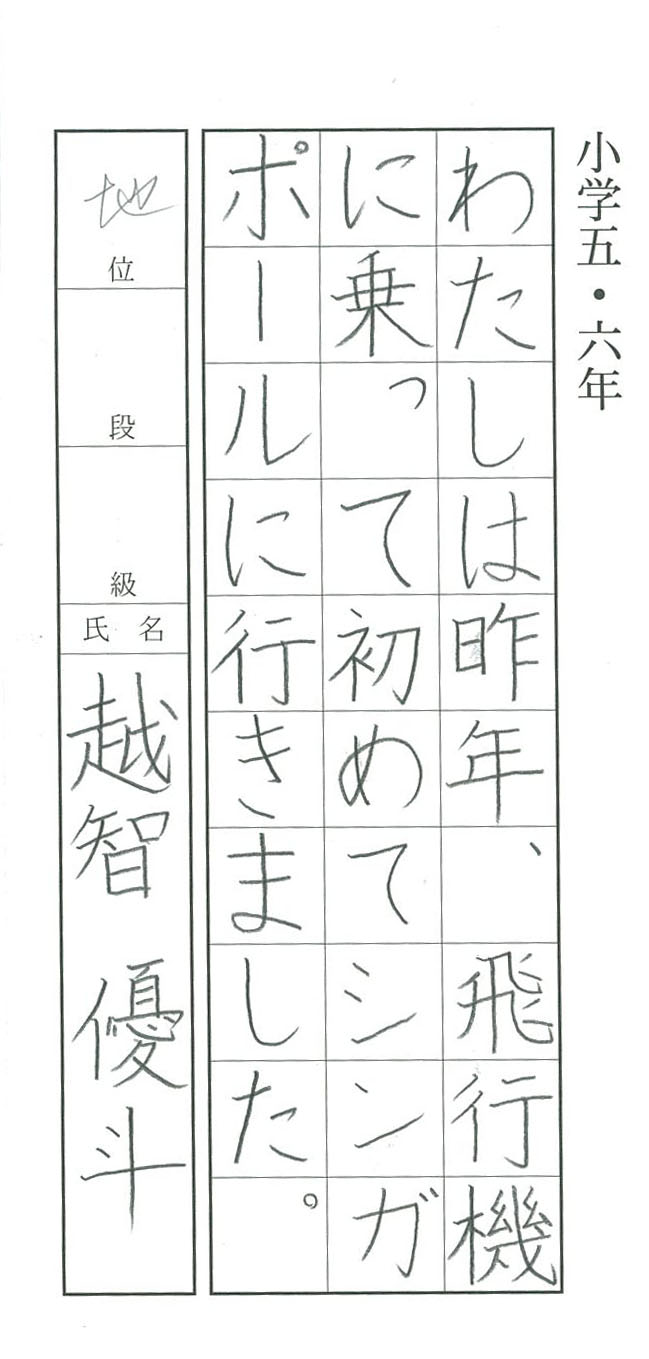 小学五・六年
わたしは昨年、飛行機
に乗って初めてシンガ
ポールに行きました。
地位
段
級
氏名
越智 優斗